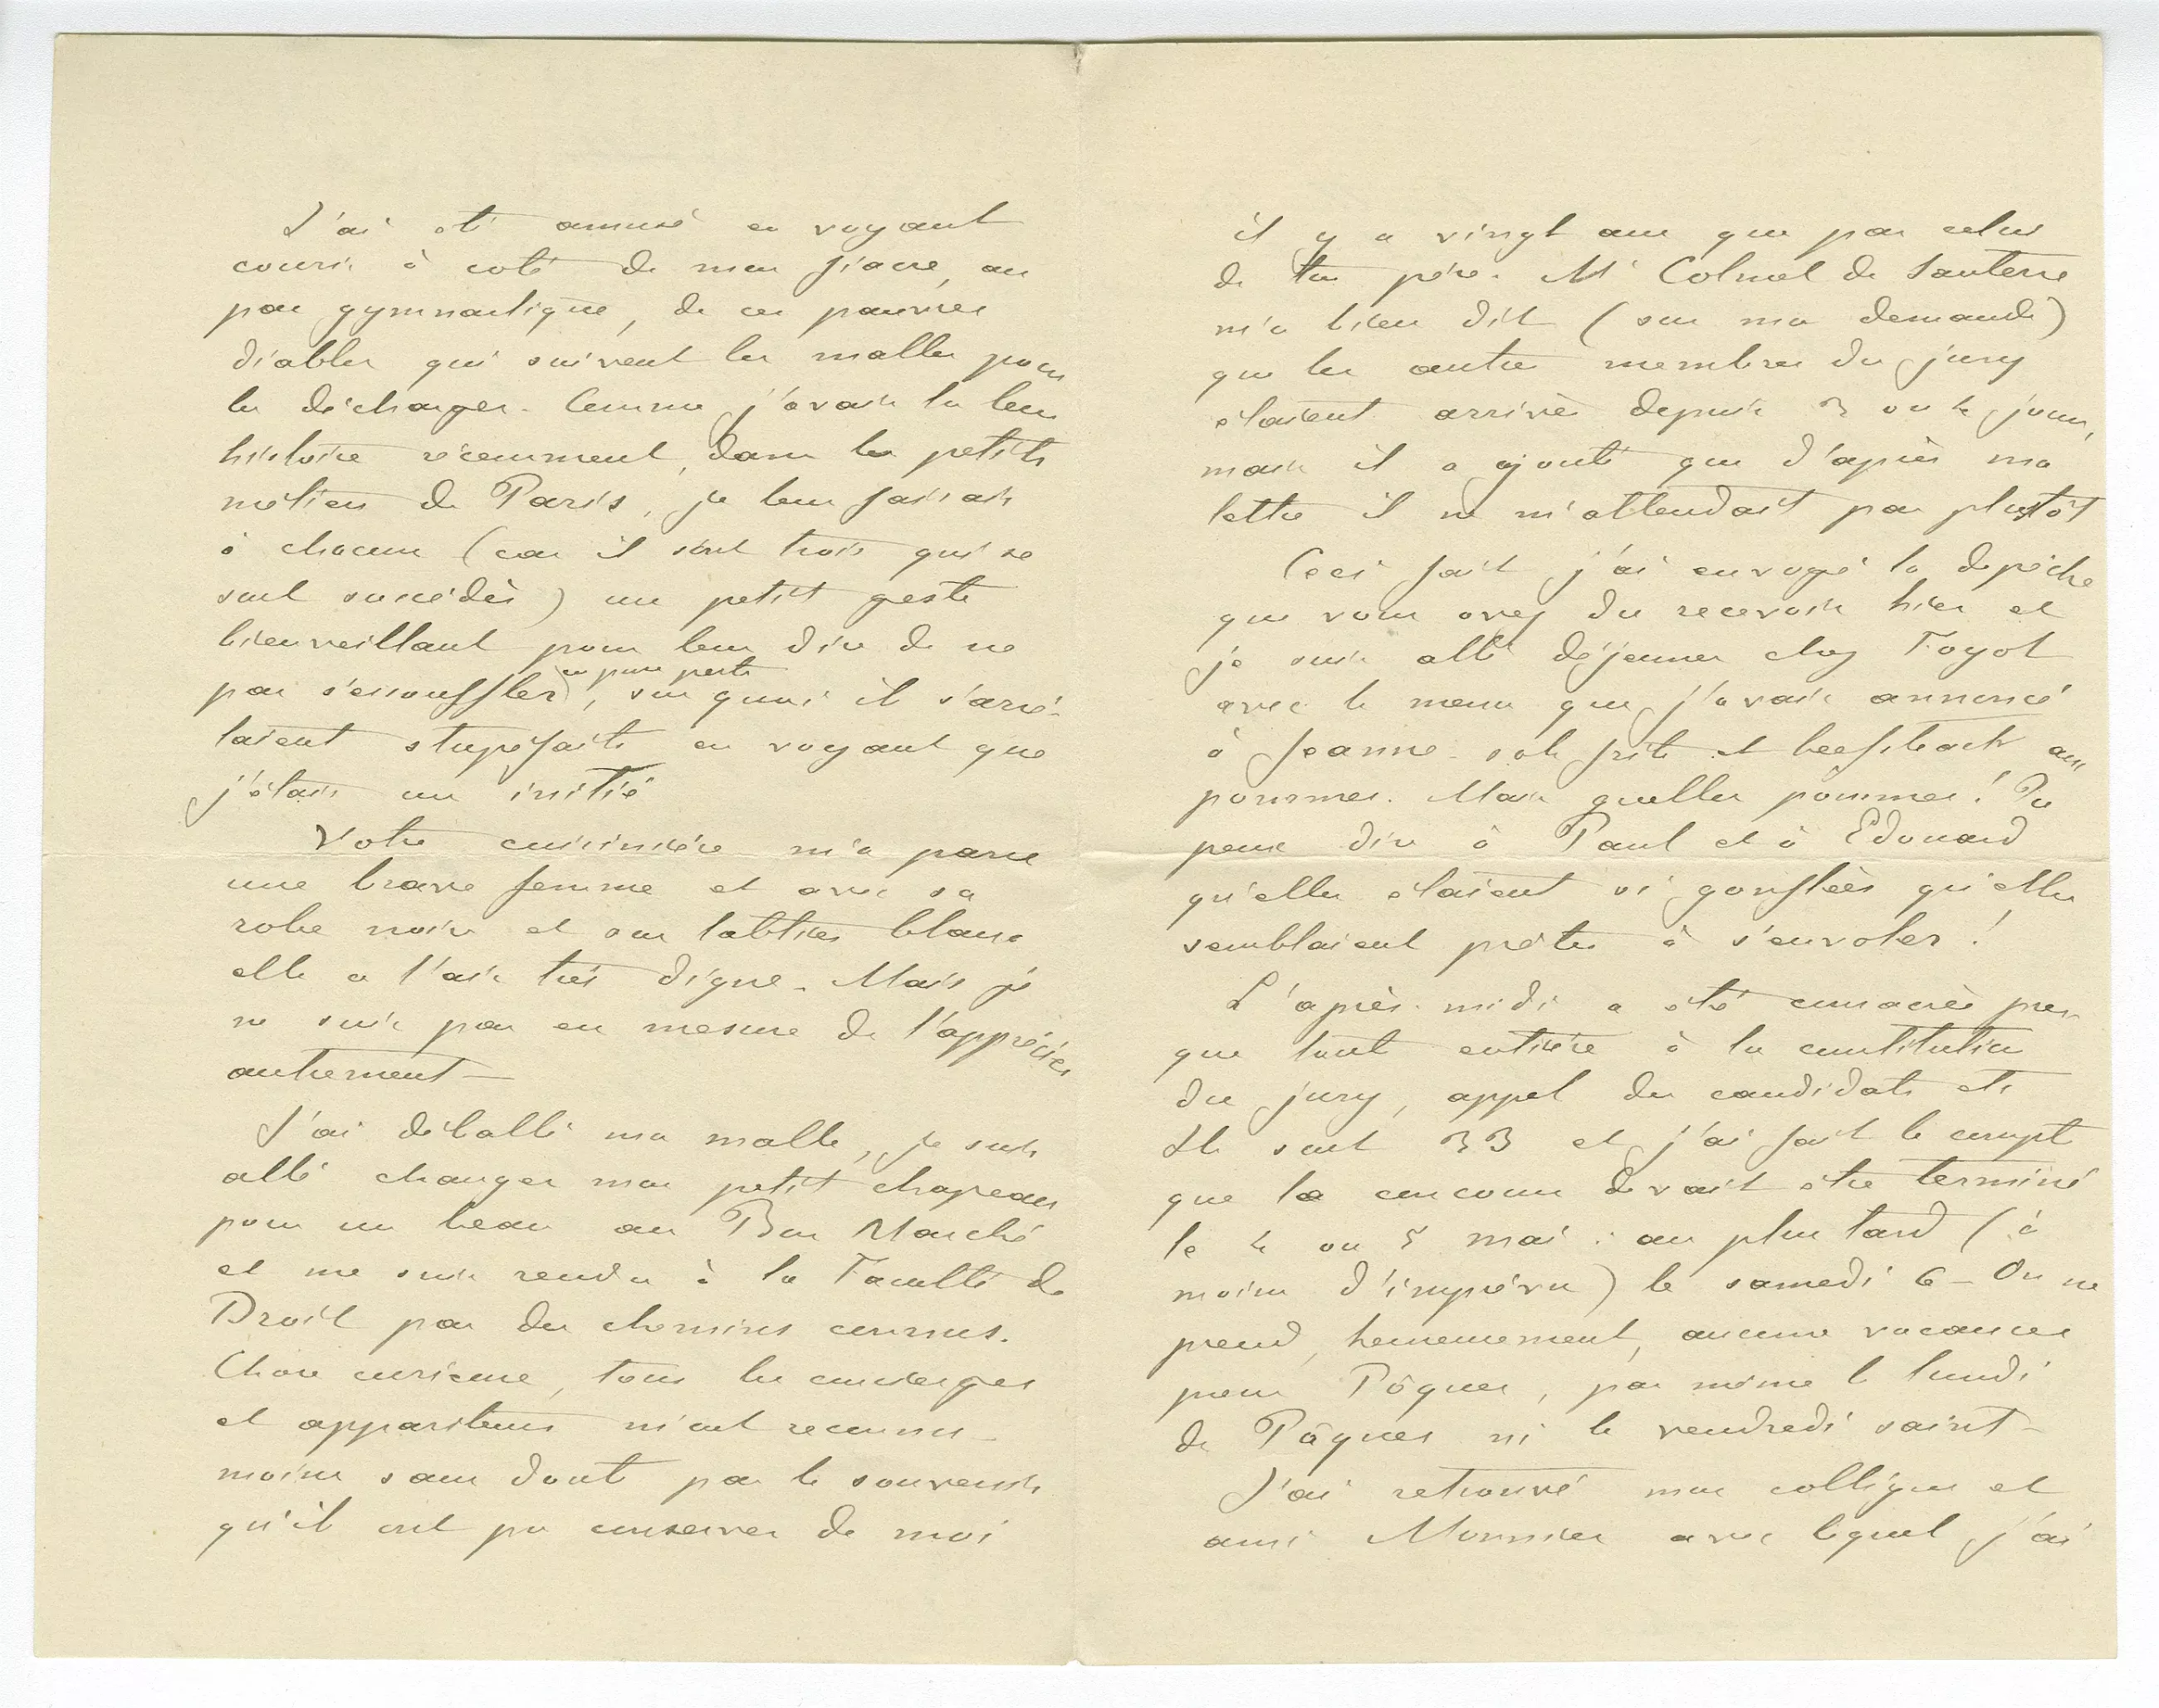 J'ai été amusé en voyant
courir à coté de mon fiacre, au
pas gymnastique, de ces pauvres
diables qui suivent les malles pour
les décharger. Comme j'avais lu leur
histoire récemment, dans les petits
métiers de Paris, je leur faisais
à chacun (car ils sont trois qui se
sont succédés) un petit geste
bienveillant pour leur dire de ne
pas s'essouffler en pure perte, sur quoi ils s'arrê-
taient stupéfaits en voyant que
j'étais un initié
Votre cuisinière m'a paru
une brave femme et avec sa
robe noire et son tablier blanc
elle a l'air très digne. Mais je
ne suis pas en mesure de l'apprécier
autrement —
J'ai déballé ma malle, je suis
allé changer mon petit chapeau
pour un beau au Bon Marché
et me suis rendu à la Faculté de
Droit par des chemins connus.
Chose curieuse, tous les concierges
et appariteurs m'ont reconnu —
moins sans doute par le souvenir
qu'ils ont pu conserver de moi
il y a vingt ans que par celui
de ton père. Mr Colmet de Santerre
m'a bien dit (sur ma demande)
que les autres membres du jury
étaient arrivés depuis 3 ou 4 jours,
mais il a ajouté que d'après ma
lettre il ne m'attendait pas plustôt
Ceci fait j'ai envoyé la dépêche
que vous avez du recevoir hier et
je suis allé déjeuner chez Foyot
avec le menu que j'avais annoncé
à Jeanne. sole frite et beefsteack aux
pommes. Mais quelles pommes! Tu
peux dire à Paul et à Edouard
qu'elles étaient si gonflées qu'elles
semblaient prêtes à s'envoler!
L'après-midi a été consacrée pres-
que tout entière à la constitution
du jury, appel des candidats etc
Ils sont 33 et j'ai fait le compte
que le concours devait être terminé
le 4 ou 5 mai : au plus tard (à
moins d'imprévu) le samedi 6 — On ne
prend, heureusement, aucune vacances
pour Pâques, pas même le lundi
de Pâques ni le vendredi saint —
J'ai retrouvé mon collègue et
ami Monnier avec lequel j'ai